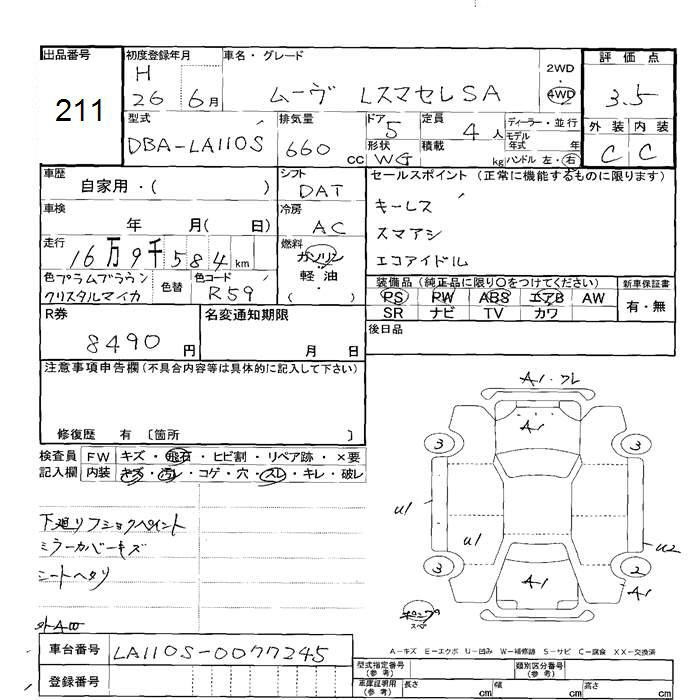 出品番号 初度登録年月 車名・グレード 評価点
211
H 26 6月
ムーヴ LスマセレSA
2WD
4WD
3.5
型式 DBA-LA110S
排気量 660 cc
ドア 5
定員 4人
形状 WG
積載 kg
ディーラー・並行
モデル年式 年
ハンドル 左・右
外装 内装
C C
車歴 自家用・( )
シフト DAT
車検 年 月( 日)
冷房 AC
走行 16万9千584km
燃料 ガソリン・軽油 ( )
色 プラムブラウンクリスタルマイカ
色替
色コード R59
セールスポイント (正常に機能するものに限ります)
キーレス
スマアシ
エコアイドル
装備品 (純正品に限り○をつけてください) 新車保証書
PS PW ABS エアB AW
SR ナビ TV カワ
有・無
R券 8490円
名変通知期限 月 日
後日品
注意事項申告欄(不具合内容等は具体的に記入して下さい)
修復歴 有 〔箇所 〕
検査員記入欄
FW キズ・飛石・ヒビ割・リペア跡・×要
内装 キズ・汚レ・コゲ・穴・スレ・キレ・破レ
下廻リフショクペイント
ミラーカバーキズ
シートヘタリ
外AW
A1・フレ
A1
3 3
U1
U1
U2
3 2
A1
A1
スペ
A-キズ E-エクボ U-凹み W-補修跡 S-サビ C-腐食 XX-交換済
車台番号 LA110S-0077245
登録番号
型式指定番号(参考) 類別区分番号(参考)
車庫証明用(参考) 長さ cm 幅 cm 高さ cm